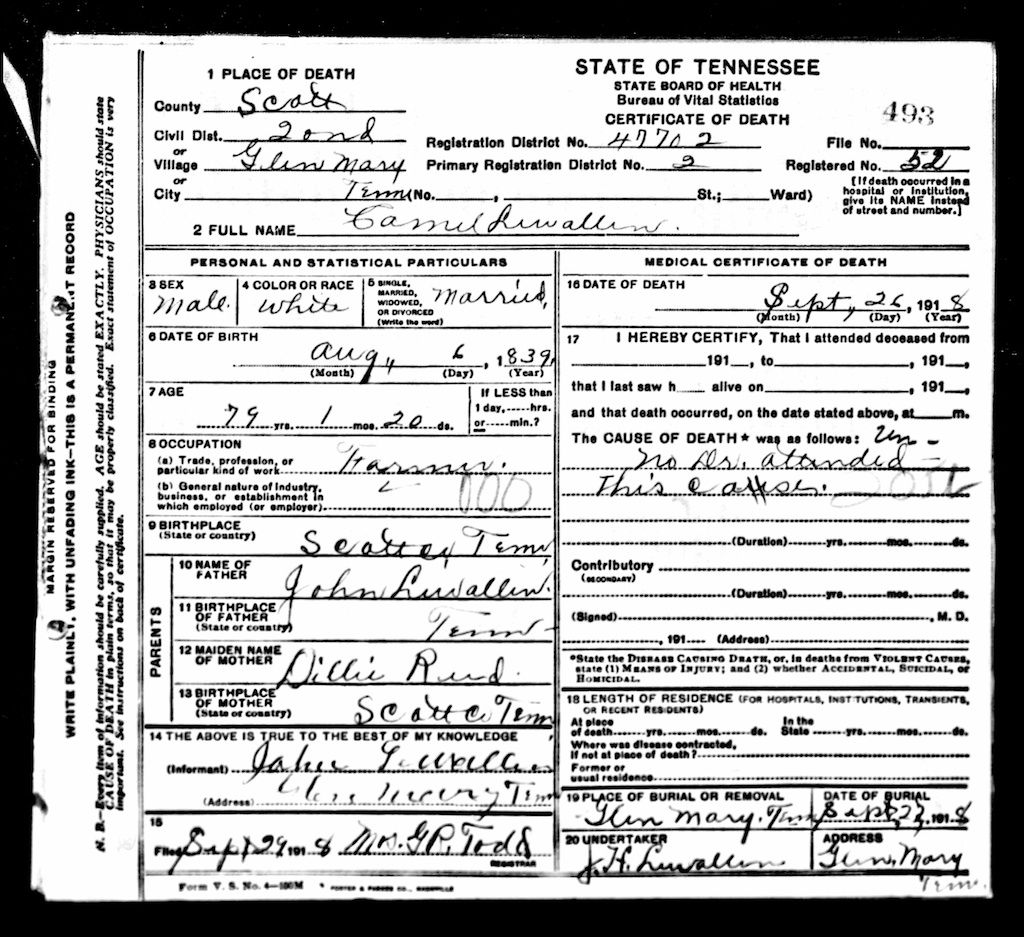 STATE OF TENNESSEE
STATE BOARD OF HEALTH
Bureau of Vital Statistics
CERTIFICATE OF DEATH
493
1 PLACE OF DEATH
County Scott
Civil Dist. 2ond
or
Village Glen Mary
or
City Tenn (No. , St.; Ward)
Registration District No. 47702 File No.
Primary Registration District No. 2 Registered No. 52
[If death occurred in a
hospital or institution,
give its NAME instead
of street and number.]
2 FULL NAME Camel Lewallen.
PERSONAL AND STATISTICAL PARTICULARS
3 SEX
Male.
4 COLOR OR RACE
White
5 SINGLE,
MARRIED,
WIDOWED,
OR DIVORCED
(Write the word)
Married,
6 DATE OF BIRTH
Aug, 6, 1839,
(Month) (Day) (Year)
7 AGE
79 yrs. 1 mos. 20 ds.
If LESS than
1 day,.....hrs.
or.....min.?
8 OCCUPATION
(a) Trade, profession, or
particular kind of work Farmer.
(b) General nature of industry,
business, or establishment in
which employed (or employer)
000
9 BIRTHPLACE
(State or country) Scott Co, Tenn,
PARENTS
10 NAME OF
FATHER John Lewallen.
11 BIRTHPLACE
OF FATHER
(State or country) Tenn
12 MAIDEN NAME
OF MOTHER Dillie Reed.
13 BIRTHPLACE
OF MOTHER
(State or country) Scott Co Tenn
14 THE ABOVE IS TRUE TO THE BEST OF MY KNOWLEDGE
(Informant) John Lewallen
(Address) Glen Mary Tenn
15
Filed Sept 29 1918 Mrs. G R. Todd
REGISTRAR
Form V. S. No. 4—100M
MEDICAL CERTIFICATE OF DEATH
16 DATE OF DEATH
Sept, 26, 1918
(Month) (Day) (Year)
17 I HEREBY CERTIFY, That I attended deceased from
191 , to , 191 ,
that I last saw h alive on , 191 ,
and that death occurred, on the date stated above, at m.
The CAUSE OF DEATH* was as follows: Un-
No Dr. attended-
This cause.
(Duration) yrs. mos. ds.
Contributory
(SECONDARY)
(Duration) yrs. mos. ds.
(Signed) , M. D.
, 191 (Address)
*State the DISEASE CAUSING DEATH, or, in deaths from VIOLENT CAUSES,
state (1) MEANS OF INJURY; and (2) whether ACCIDENTAL, SUICIDAL, or
HOMICIDAL.
18 LENGTH OF RESIDENCE (FOR HOSPITALS, INSTITUTIONS, TRANSIENTS,
OR RECENT RESIDENTS)
At place
of death yrs. mos. ds.
In the
State yrs. mos. ds.
Where was disease contracted,
If not at place of death?
Former or
usual residence
19 PLACE OF BURIAL OR REMOVAL
Glen Mary. Tenn
DATE OF BURIAL
Sept, 27, 1918
20 UNDERTAKER
J. H. Lewallen
ADDRESS
Glen, Mary
Tenn.
MARGIN RESERVED FOR BINDING
WRITE PLAINLY, WITH UNFADING INK—THIS IS A PERMANENT RECORD
N. B.—Every item of information should be carefully supplied. AGE should be stated EXACTLY. PHYSICIANS should state
CAUSE OF DEATH in plain terms, so that it may be properly classified. Exact statement of OCCUPATION is very
important. See instructions on back of certificate.